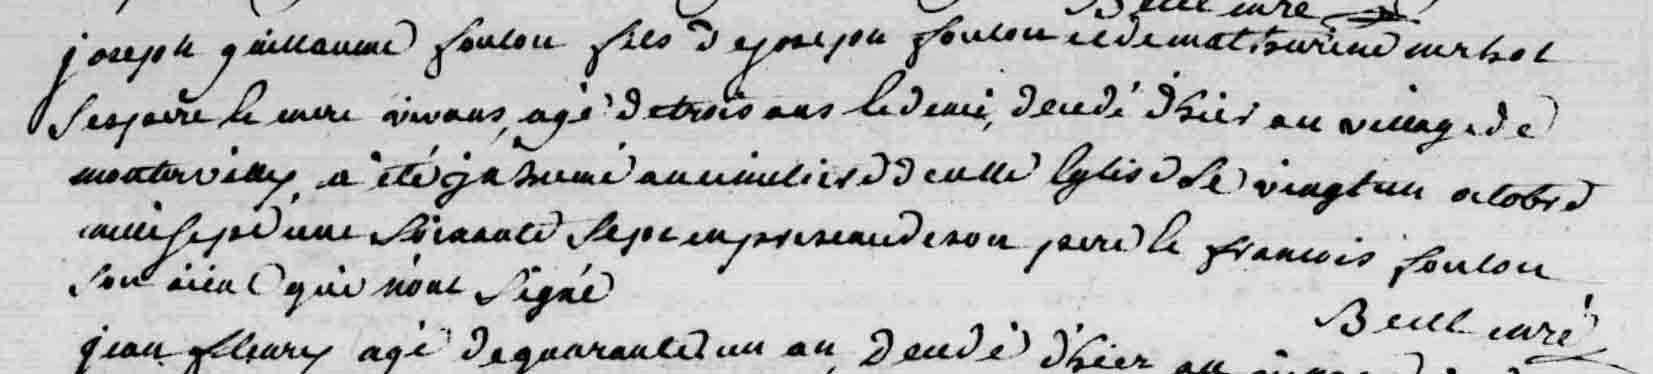 curé
joseph guillaume foulon fils de joseph foulon et de mathurine
ses père et mere vivans, agé de trois ans et demi, decedé d'hier au village de
a été jnhumé au cimetiere de cette Eglise le vingt un octobre
mil sept cent soixante sept en presence de son pere et francois foulon
son aieul qui n'ont signé
curé
jean fleury agé de quarante un an, decedé d'hier au